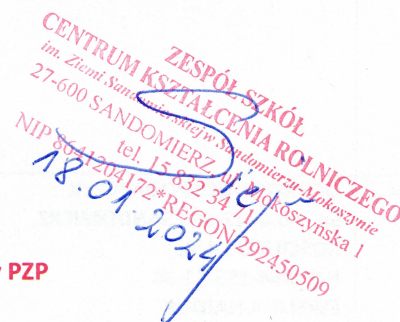 ZESPÓŁ SZKÓŁ
CENTRUM KSZTAŁCENIA ROLNICZEGO
im. Ziemi Sandomierskiej w Sandomierzu-Mokoszynie
27-600 SANDOMIERZ, ul. Mokoszyńska 1
tel. 15 832 34 71
NIP 8641204172*REGON 292450509
18.01.2024
PZP